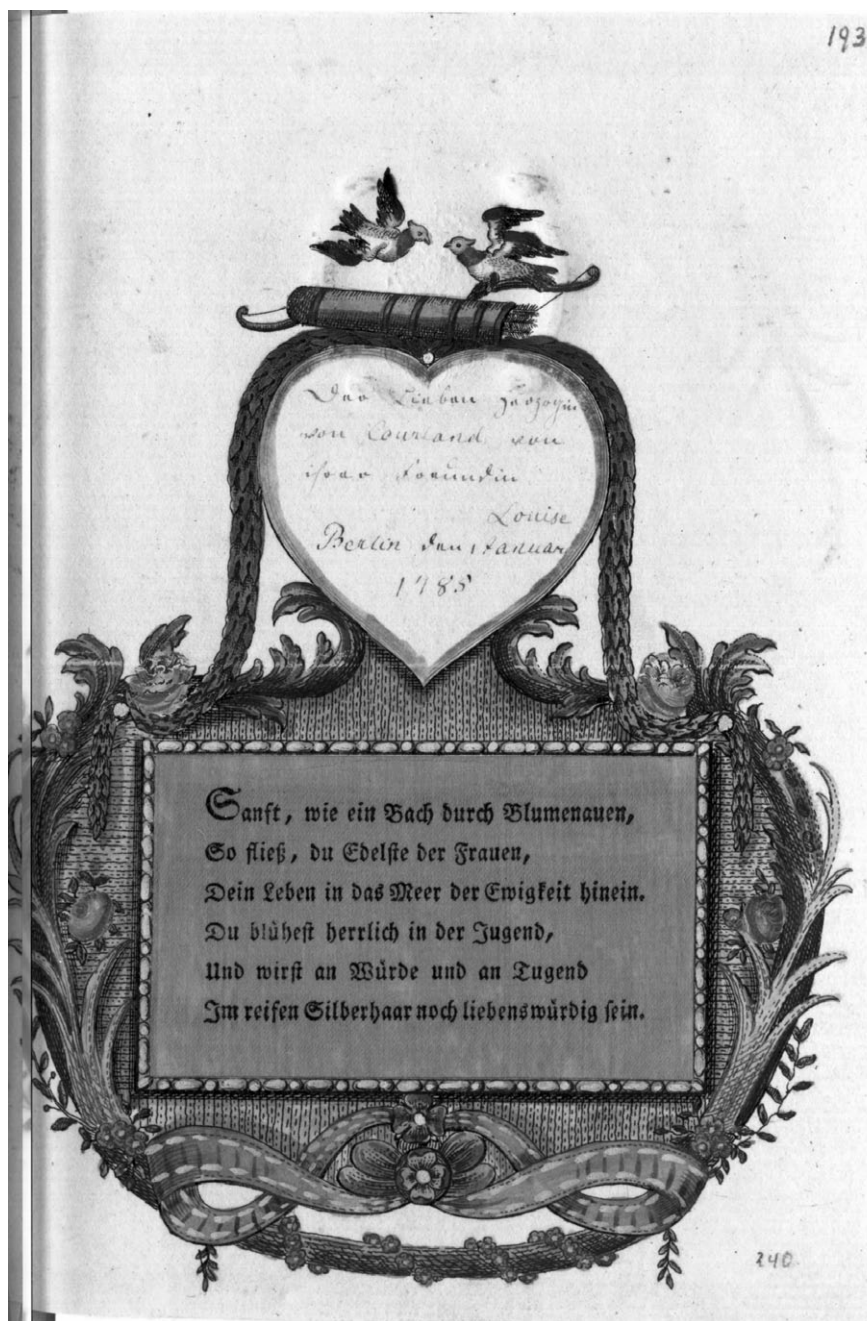 193
Der Lieben Herzogin
von Courland von
ihrer Freundin
Louise
Berlin den 1 Januar
1785
Sanft, wie ein Bach durch Blumenauen,
So fließ, du Edelste der Frauen,
Dein Leben in das Meer der Ewigkeit hinein.
Du blühest herrlich in der Jugend,
Und wirst an Würde und an Tugend
Im reifen Silberhaar noch liebenswürdig sein.
240